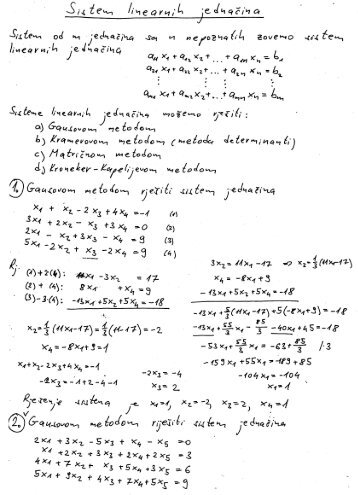 Sistem linearnih jednačina
Sistem od m jednačina sa n nepoznatih zovemo sistem
linearnih jednačina
a₁₁x₁ + a₁₂x₂ + ... + a₁ₙxₙ = b₁
a₂₁x₁ + a₂₂x₂ + ... + a₂ₙxₙ = b₂
⋮ ⋮ ⋮
aₘ₁x₁ + aₘ₂x₂ + ... + aₘₙxₙ = bₘ
Sisteme linearnih jednačina možemo riješiti:
a) Gausovom metodom
b) Kramerovom metodom (metoda determinanti)
c) Matričnom metodom
d) Kroneker-Kapelijevom metodom
1. Gausovom metodom riješiti sistem jednačina
x₁ + x₂ - 2x₃ + 4x₄ = -1 (1)
3x₁ + 2x₂ - x₃ + 3x₄ = 0 (2)
2x₁ - x₂ + 3x₃ - x₄ = 9 (3)
5x₁ - 2x₂ + x₃ - 2x₄ = 9 (4)
Rj
(2)+2(4): 11x₁ - 3x₂ = 17
(2)+(4): 8x₁ + x₄ = 9
(3)-3(4): -13x₁ + 5x₂ + 5x₄ = -18
x₂ = 1/3 (11x₁ - 17) = 1/3 (11 - 17) = -2
x₄ = -8x₁ + 9 = 1
x₁ + x₂ - 2x₃ + 4x₄ = -1
-2x₃ = -1 + 2 - 4 - 1
-2x₃ = -4
x₃ = 2
3x₂ = 11x₁ - 17 ⇒ x₂ = 1/3 (11x₁ - 17)
x₄ = -8x₁ + 9
-13x₁ + 5x₂ + 5x₄ = -18
-13x₁ + 5/3 (11x₁ - 17) + 5(-8x₁ + 9) = -18
-13x₁ + 55/3 x₁ - 85/3 - 40x₁ + 45 = -18
-53x₁ + 55/3 x₁ = -63 + 85/3 /·3
-159x₁ + 55x₁ = -189 + 85
-104x₁ = -104
x₁ = 1
Rješenje sistema je x₁=1, x₂=-2, x₃=2, x₄=1
2. Gausovom metodom riješiti sistem jednačina
2x₁ + 3x₂ - 5x₃ + x₄ - x₅ = 0
x₁ + 2x₂ + 3x₃ + 2x₄ + 2x₅ = 3
4x₁ + 7x₂ + x₃ + 5x₄ + 3x₅ = 6
5x₁ + 9x₂ + 4x₃ + 7x₄ + 5x₅ = 9